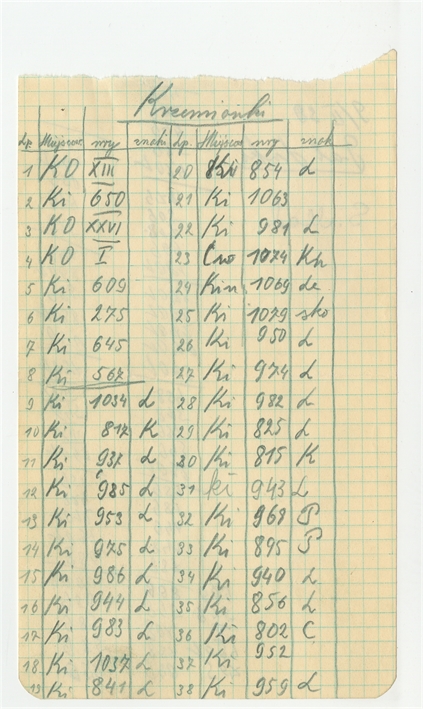 Krzemionki
Lp. Miejscow nry znaki Lp. Miejscow nry znak
1 KO XIII 20 Ki 854 L
2 Ki 650 21 Ki 1063
3 KO XXVI 22 Ki 981 L
4 KO I 23 1074 Kh
5 Ki 609 24 1069 de
6 Ki 275 25 Ki 1079 sko
7 Ki 645 26 Ki 950 L
8 Ki 567 27 Ki 974 L
9 Ki 1034 L 28 Ki 982 L
10 Ki 817 K 29 Ki 825 L
11 Ki 937 L 30 Ki 815 K
12 Ki 985 L 31 Ki 943 L
13 Ki 953 L 32 Ki 968 P
14 Ki 975 L 33 Ki 895 P
15 Ki 986 L 34 Ki 940 L
16 Ki 944 L 35 Ki 856 L
17 Ki 983 L 36 Ki 802 C
18 Ki 1037 L 37 Ki 952
19 Ki 841 L 38 Ki 959 L